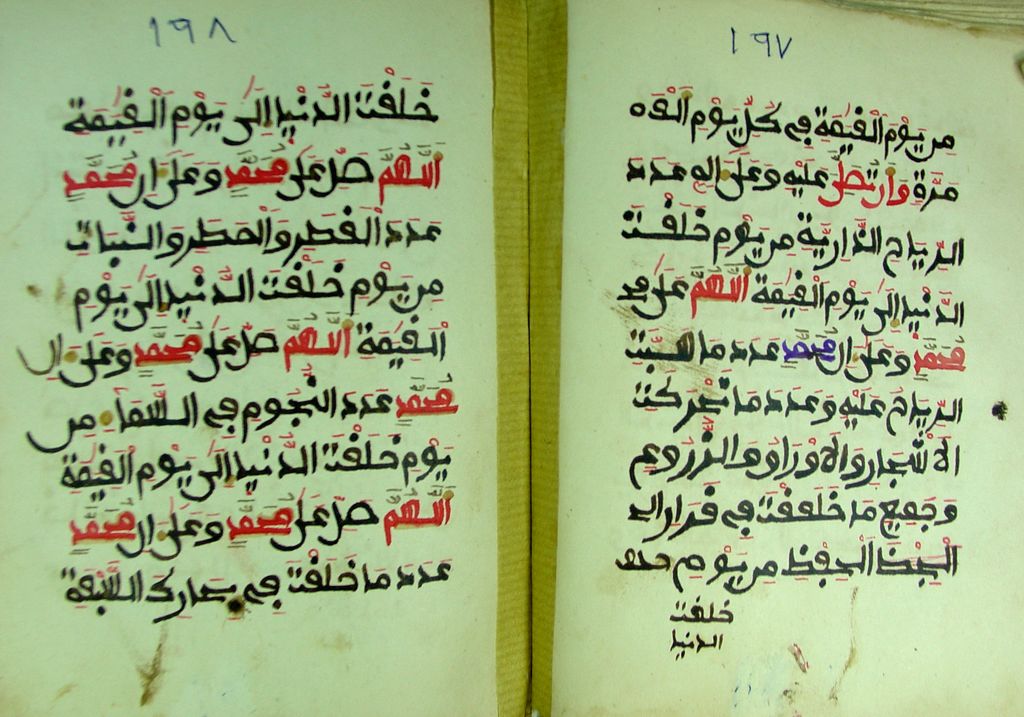 ١٩٧
من يوم القيمة في كل يوم الف
مرة وان تصل عليه وعلى اله عدد
الرياح الذارية من يوم خلقت
الدنيا الى يوم القيمة اللهم صل على
محمد وعلى ال محمد عدد ما
الرياح عليه وعدد ما تحركت
الاشجار والاوراق والزروع
وجميع ما خلقت في قرار
الحفظ من يوم
خلقت
الدنيا
١٩٨
خلقت الدنيا الى يوم القيمة
اللهم صل على محمد وعلى ال محمد
عدد القطر والمطر والنبات
من يوم خلقت الدنيا الى يوم
القيمة اللهم صل على محمد وعلى ال
محمد عدد النجوم في السماء من
يوم خلقت الدنيا الى يوم القيمة
اللهم صل على محمد وعلى ال محمد
عدد ما خلقت في بحارك السبعة